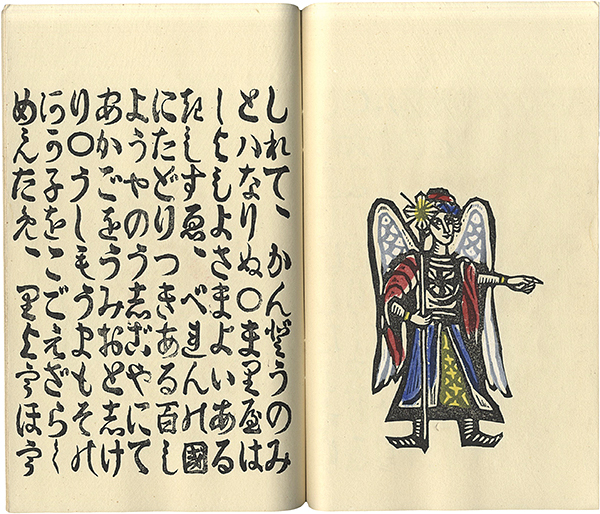 しれて、かん堂うのみ
とハなりぬ〇ま里屋は
しよしよさまよいある
きしすゑ、べれんの國
にたどりつきある百し
ようやのう志ごやにて
あかごをうみおと志け
り〇うしもうまもその
子をこごえざらし
めんため、里よう ほう